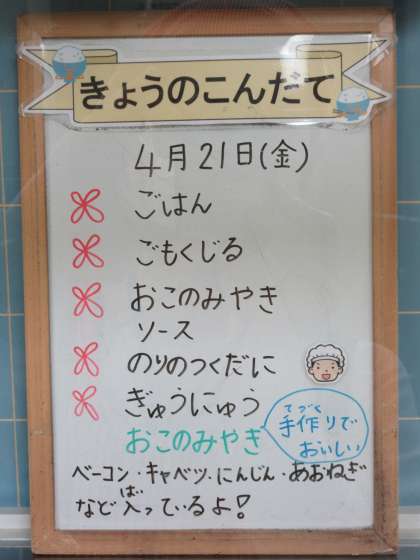 きょうのこんだて
4月21日(金)
ごはん
ごもくじる
おこのみやき
ソース
のりのつくだに
ぎゅうにゅう
おこのみやき
てづく
手作りで
おいしい
ベーコン・キャベツ・にんじん・あおねぎ
など入っているよ!